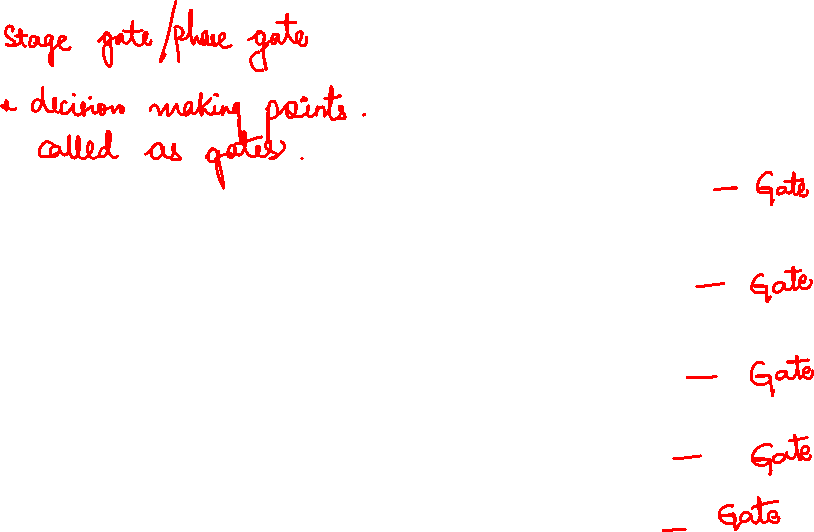 Stage gate/phase gate
* decision making points.
called as gates.
— Gate
— Gate
— Gate
— Gate
— Gate